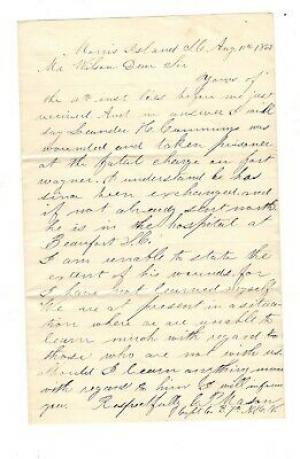 Morris Island S.C. Aug 10th 1863
Mr Wilson Dear Sir
Yours of
the 4th inst lies before me just
received And in answer I will
say Leander H. Cummings was
wounded and taken prisoner
at the fatal charge on fort
wagner. I understand he has
since been exchanged and
if not already sent north
he is in the hospital at
Beaufort S.C.
I am unable to state the
extent of his wounds, for
I have not learned myself
We are at present in a situa
tion where we are unable to
learn much with regard to
those who are not with us
should I learn anything more
with regard to him I will inform
you. Respectfully Mason
Capt Co 7th N.H. V.